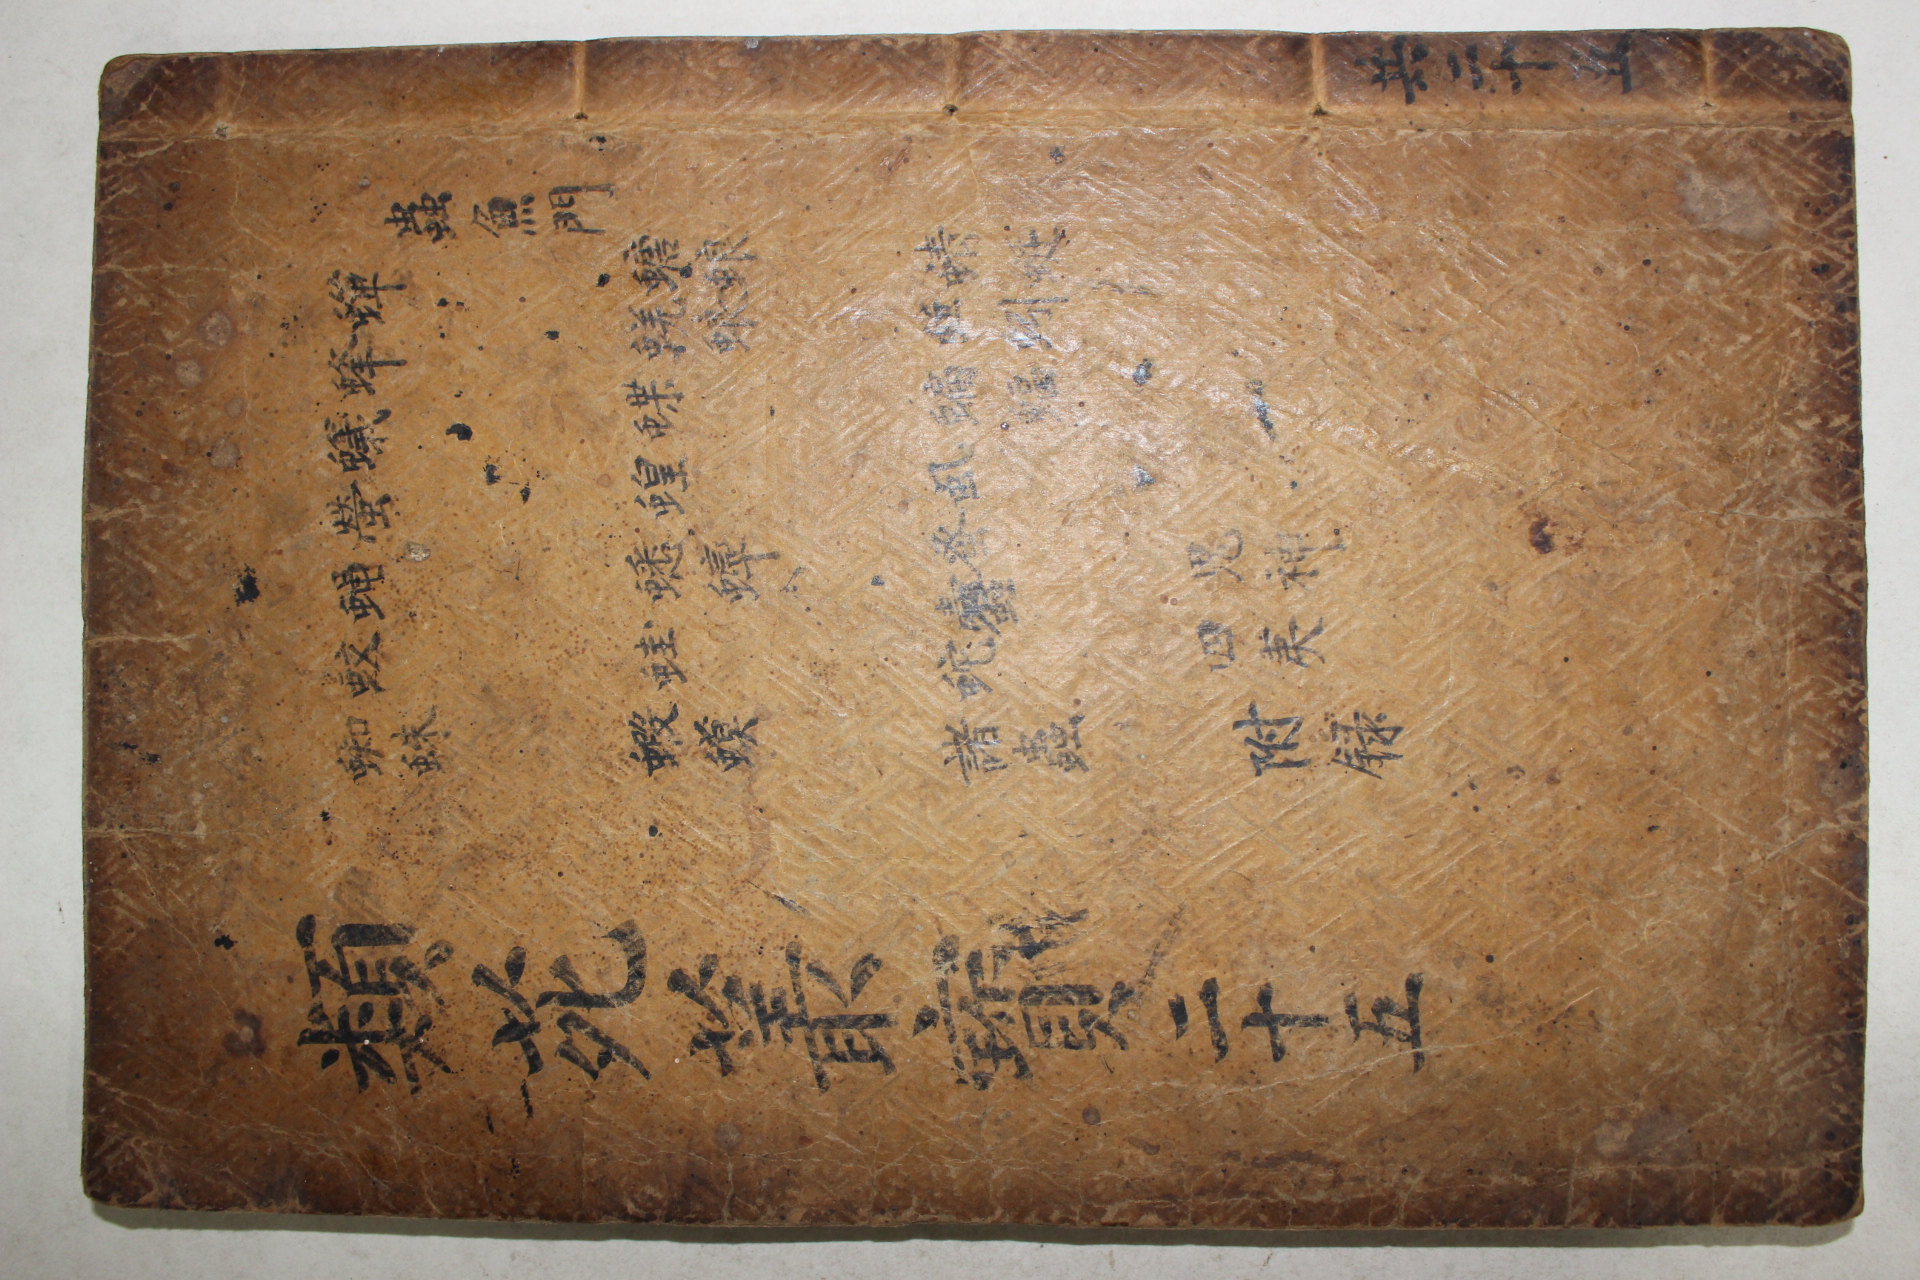 共二十五
蟲魚門
蟬 蜂 蟻 螢 蝇 蚊 蜘蛛
蜋 蜣蜋 蝶 蝗 蟋蟀 蛙 蝦蟆
蜻蜓 蚯蚓 蝙蝠 虱 蚤 蠹 蛇 諸蟲
鬼神 四夷 附録
類苑叢寶二十五